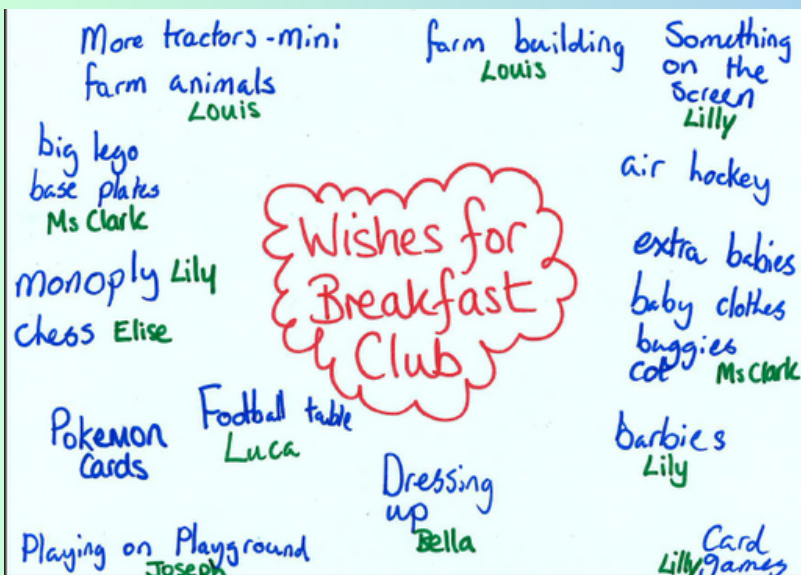 More tractors-mini
farm animals
Louis
farm building
Louis
Something
on the
screen
Lilly
big lego
base plates
Ms Clark
air hockey
Wishes for
Breakfast
Club
monoply Lily
chess Elise
extra babies
baby clothes
buggies
cot Ms Clark
Pokemon
Cards
Football table
Luca
Dressing
up
Bella
barbies
Lily
Playing on Playground
Joseph
Card
Lilly games